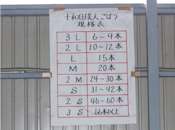 十和田美人ごぼう
規格表
3L 6～9本
2L 10～12本
L 15本
M 20本
2M 24～30本
S 31～42本
2S 46～60本
3S 66本以上